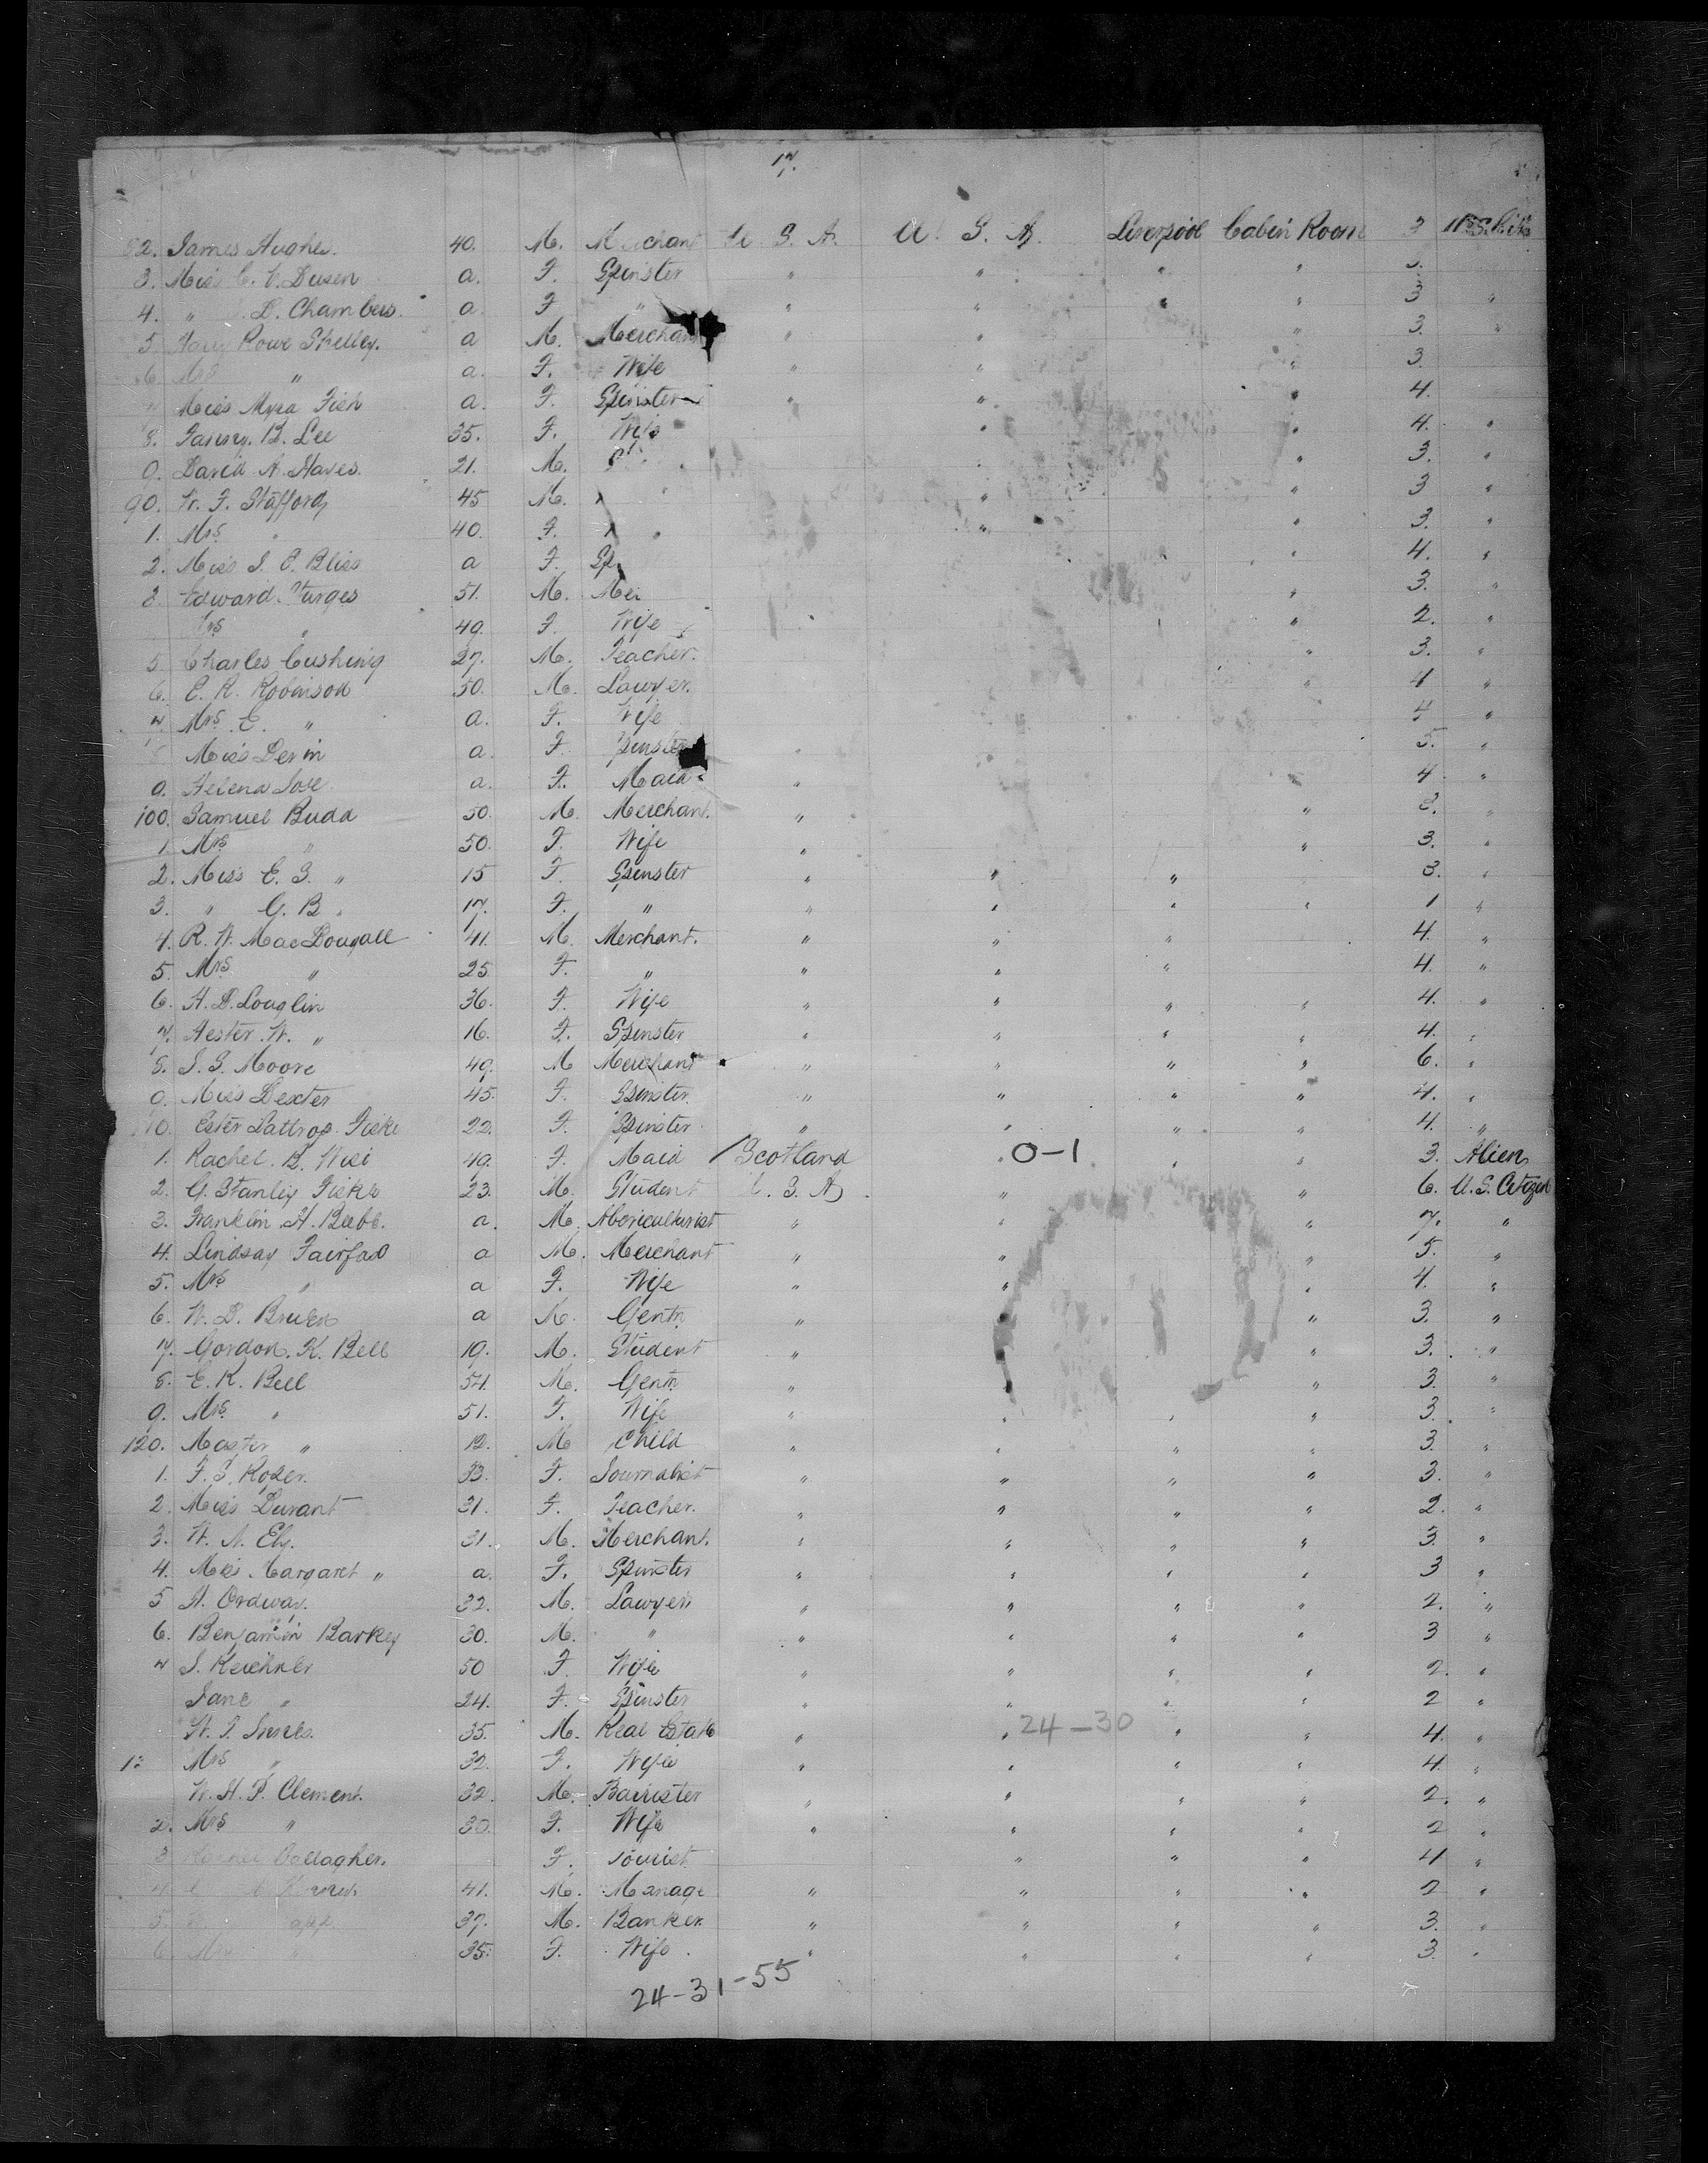 17.
82. James Hughes. 40. M. Merchant U. S. A. U. S. A. Liverpool Cabin Room 3 U.S. Citz
3. Miss C. V. Dusen a. F. Spinster " " " " 3.
4. " L. D. Chambers. a. F " " " " " 3 "
5 Harry Rowe Shelley. a M. Merchant " " " 3. "
6 Mrs " a. F. Wife " " " 3.
Miss Myra Fish a. F. Spinster " " " 4.
8. Fanny. B. Lee 35. F. Wife " " 4. "
9. David A. Hawes. 21. M. " 3. "
90. W. F. Stafford 45 M. " " " 3 "
1. Mrs " 40. F. " " " 3. "
2. Miss S. E. Bliss a F. Sp " 4. "
3. Edward Sturges 51. M. Mer " 3. "
Mrs " 49. F. Wife " 2. "
5. Charles Cushing 27. M. Teacher. " 3. "
6. E. R. Robinson 50. M. Lawyer. " 4 "
7. Mrs. E. " a. F. Wife 4 "
Miss Derin a. F. Spinster " 5. "
9. Helena a. F. Maid " 4 "
100. Samuel Budd 50. M. Merchant. " " 3. "
1. Mrs " 50. F. Wife " " 3. "
2. Miss E. S. " 15 F. Spinster " " " 3. "
3. " G. B. " 17. F. " " " " " 1 "
4. R. W. MacDougall 41. M. Merchant. " " " 4. "
5. Mrs " 25 F. " " " " 4. "
6. H. D. Louglin 36. F. Wife " " " " 4. "
7. Hester. W. " 16. F. Spinster " " " " 4. "
8. J. S. Moore 49. M Merchant " " " " 6. "
9. Miss Dexter 45. F. Spinster. " " " " 4. "
110. Ester Lattrop Fiske 22. F. Spinster. " " " " 4. "
1. Rachel. B. Wisi 49. F. Maid / Scotland " 0-1 " " 3. Alien
2. G. Stanley Fiske 23. M. Student U. S. A. " " 6. U. S. Citizen
3. Franklin H. Beebe. a. M. Aboriculturist " " " 7. "
4. Lindsay Fairfax a M. Merchant " " " 5. "
5. Mrs " a F. Wife " " " 4. "
6. W. D. Bruen a M. Gentn " " " 3. "
7. Gordon. K. Bell 19. M. Student " " " 3. "
8. E. K. Bell 54. M. Gentn " " " 3. "
9. Mrs. " 51. F. Wife " " " " 3. "
120. Master " 12. M Child " " " " 3. "
1. F. S. Roser. 33. F. Journalist " " " " 3. "
2. Miss Durant 31. F. Teacher. " " " " 2. "
3. W. N. Ely. 31. M. Merchant. " " " " 3. "
4. Miss Margaret " a. F. Spinster " " " " 3 "
5 H. Ordway. 32. M. Lawyer " " " " 2. "
6. Benjamin Barkey 30. M. " " " " " 3 "
7 S. Kerchner 50 F. Wife " " " " 2. "
Jane " 24. F. Spinster " " " " 2 "
35. M. Real Estate " " 24-30 " " 4. "
Mrs " 32. F. Wife " " " " 4. "
W. H. P. Clement. 32. M. Barrister " " " " 2. "
2. Mrs " 30. F. Wife " " " " 2 "
3 Gallagher. F. Tourist. " " " 4 "
41. M. Manage " " " " 2 "
5. 37. M. Banker " " " " 3. "
6 Mrs " 35. F. Wife. " " " " 3. "
24-31-55